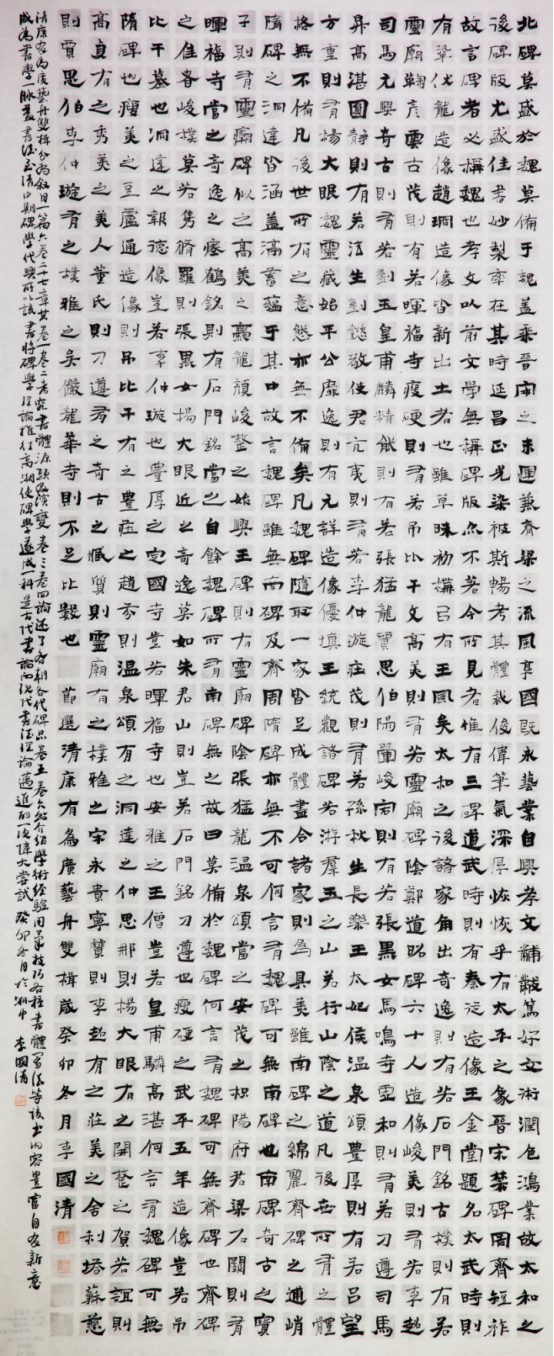 北碑莫盛於魏莫備於魏蓋乘晉宋之末運兼齊梁之流風享國既永藝業自興孝文黼黻篤好文術潤色鴻業故太和之
後碑版尤盛佳書妙製率在其時延昌正光染被斯暢考其體裁俊偉筆氣深厚恢恢乎有太平之象晉宋禁碑周齊短祚
故言碑者必稱魏也孝文以前文學無稱碑版亦不著今所見者惟有三碑道武時則有秦從造像王金堂題名太武時則
有鞏伏龍造像趙珂造像皆新出土者也雖草昧初構已有王風矣太和之後諸家角出奇逸則有若石門銘古樸則有若
靈廟鞠彥雲古茂則有若暉福寺瘦硬則有若弔比干文高美則有若靈廟碑陰鄭道昭六十人造像峻美則有若李超
司馬元興奇古則有若劉玉皇甫驎精能則有若張猛龍賈思伯陽翬峻宕則有若張黑女馬鳴寺虛和則有若刁遵司馬
昇高湛圓靜則有若法生劉懿敬使君亢夷則有若李仲璇莊茂則有若孫秋生長樂王太妃侯溫泉頌豐厚則有若呂望
方重則有若楊大眼魏靈藏始平公靡逸則有元詳造像優填王統觀諸碑若游群玉之山若行山陰之道凡後世所有之體
格無不備凡後世所有之意態亦無不備矣凡魏碑隨取一家皆足成體盡合諸家則為具美雖南碑之綿麗齊碑之逋峭
隋碑之洞達皆涵蓋渟蓄蘊于其中故言魏碑雖無南碑及齊周隋碑亦無不可何言有魏碑可無南碑也南碑奇古之寶
子則有靈廟碑似之高美之爨龍顏峻整之始興王碑則有靈廟碑陰張猛龍溫泉頌當之安茂之枳陽府君梁石闕則有
暉福寺當之奇逸之瘞鶴銘則有石門銘當之自餘魏碑所有南碑無之故曰莫備於魏碑何言有魏碑可無齊碑也齊碑
之佳者峻樸莫若雋脩羅則張黑女楊大眼近之奇逸莫如朱君山則豈若石門銘刁遵也瘦硬之武平五年造像豈若弔
比干墓也洞達之報德像豈若李仲璇也豐厚之定國寺豈若暉福寺也安雅之王僧豈若皇甫驎高湛何言有魏碑可無
隋碑也瘦美之豆盧通造像則弔比干有之豐莊之趙芬則溫泉頌有之洞達之仲思那則楊大眼有之開整之賀若誼則
高貞有之秀美之美人董氏則刁遵有之奇古之臧質則靈廟有之樸雅之宋永貴寧贙則李超有之莊美之舍利塔蘇慈
則賈思伯李仲璇有之樸雅之吳儼龍華寺則不足比數也 節選清康有為廣藝舟雙楫歲癸卯冬月李國清
清康有為廣藝舟雙楫分為敘目一篇六卷二十七章其卷一卷二考究書體源頭及演變卷三卷四論述了各朝各代碑品卷五卷六然介紹學術經驗用筆技巧各種書體習法等該書內容豐富自有新意
成為書學一脈考書法至清中期碑學代興所以該書將碑學理論推任高潮使碑學遂成一科是古代書論向現代書法理論邁進的一次偉大嘗試癸卯冬月於湘中李國清